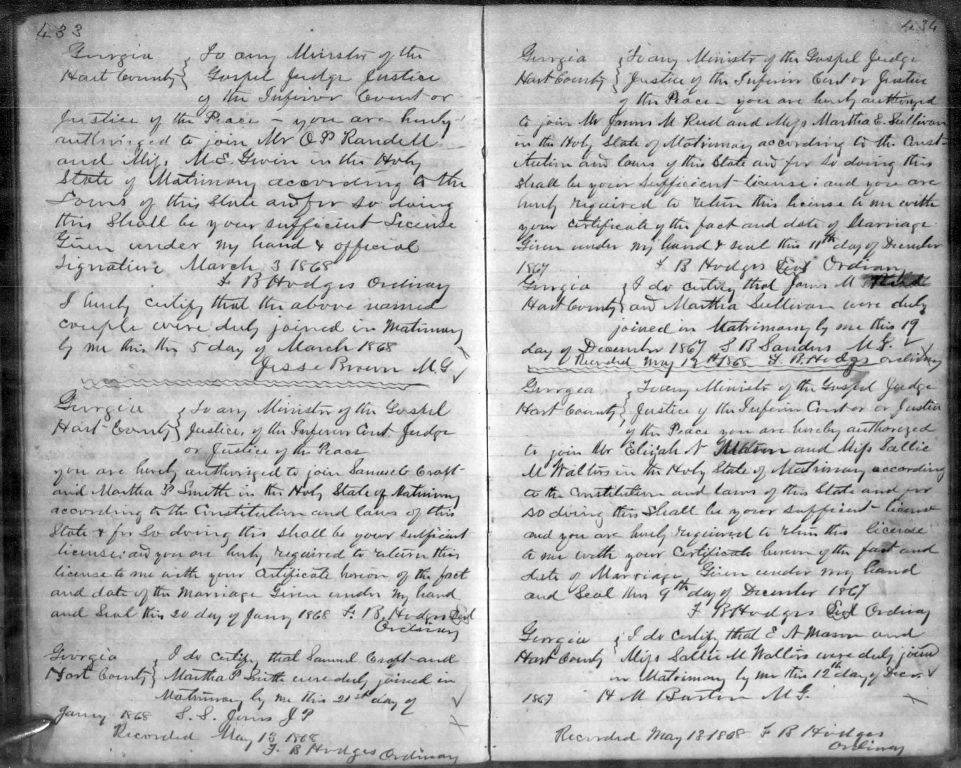 433
Georgia } To any Minister of the
Hart County } Gospel Judge Justice
of the Inferior Court or
Justice of the Peace - you are hereby
authorized to join Mr O P Randell
and Miss M E Given in the Holy
State of Matrimony according to the
Laws of this State and for so doing
this Shall be your sufficient License
Given under my hand & official
Signature March 3 1868
F B Hodges Ordinary
I hereby certify that the above named
couple were duly joined in Matrimony
by me this the 5 day of March 1868
Jesse Brown M G
Georgia } To any Minister of the Gospel
Hart County } Justices of the Inferior Court Judge
or Justice of the Peace
you are hereby authorized to join Samuel Craft
and Martha P Smith in the Holy State of Matrimony
according to the Constitution and laws of this
State & for So doing this shall be your sufficient
license: and you are hereby required to return this
license to me with your Certificate hereon of the fact
and date of the Marriage Given under My hand
and Seal this 20 day of Jany 1868 F. B. Hodges
Ordinary
Georgia } I do certify that Samuel Craft and
Hart County } Martha P Smith were duly joined in
Matrimony by me this 21st day of
Janry 1868 S. S. Jones J P
Recorded May 13 1868
F B Hodges Ordinary
434
Georgia } To any Minister of the Gospel Judge
Hart County } Justice of the Inferior Court or Justice
of the Peace - you are hereby authorized
to join Mr James M Reid and Miss Martha E. Sullivan
in the Holy State of Matrimony according to the Const-
itution and laws of this State and for So doing this
shall be your sufficient license: and you are
hereby required to return this license to me with
your Certificate of the fact and date of Marriage
Given under my hand & seal this 11th day of December
1867 F B Hodges Ordinary
Georgia } I do certify that James M
Hart County } and Martha Sullivan were duly
joined in Matrimony by me this 19
day of December 1867 S B Sanders M. G.
Recorded May 12th 1868 F. B. Hodges ordinary
Georgia } To any Minister of the Gospel Judge
Hart County } Justice of the Inferior Court or or Justice
of the Peace you are hereby authorized
to join Mr Elijah N and Miss Sallie
M Walters in the Holy State of Matrimony according
to the Constitution and laws of this State and for
so doing this Shall be your sufficient license
and you are hereby required to return this license
to me with your Certificate hereon of the fact and
date of Marriage Given under my hand
and Seal this 9th day of December 1867
F B Hodges Ordinary
Georgia } I do certify that E N Mason and
Hart County } Miss Sallie M Walters were duly join
in Matrimony by me this 12th day of Decr
1867 H M Barton M. G.
Recorded May 13 1868 F B Hodges
Ordinary